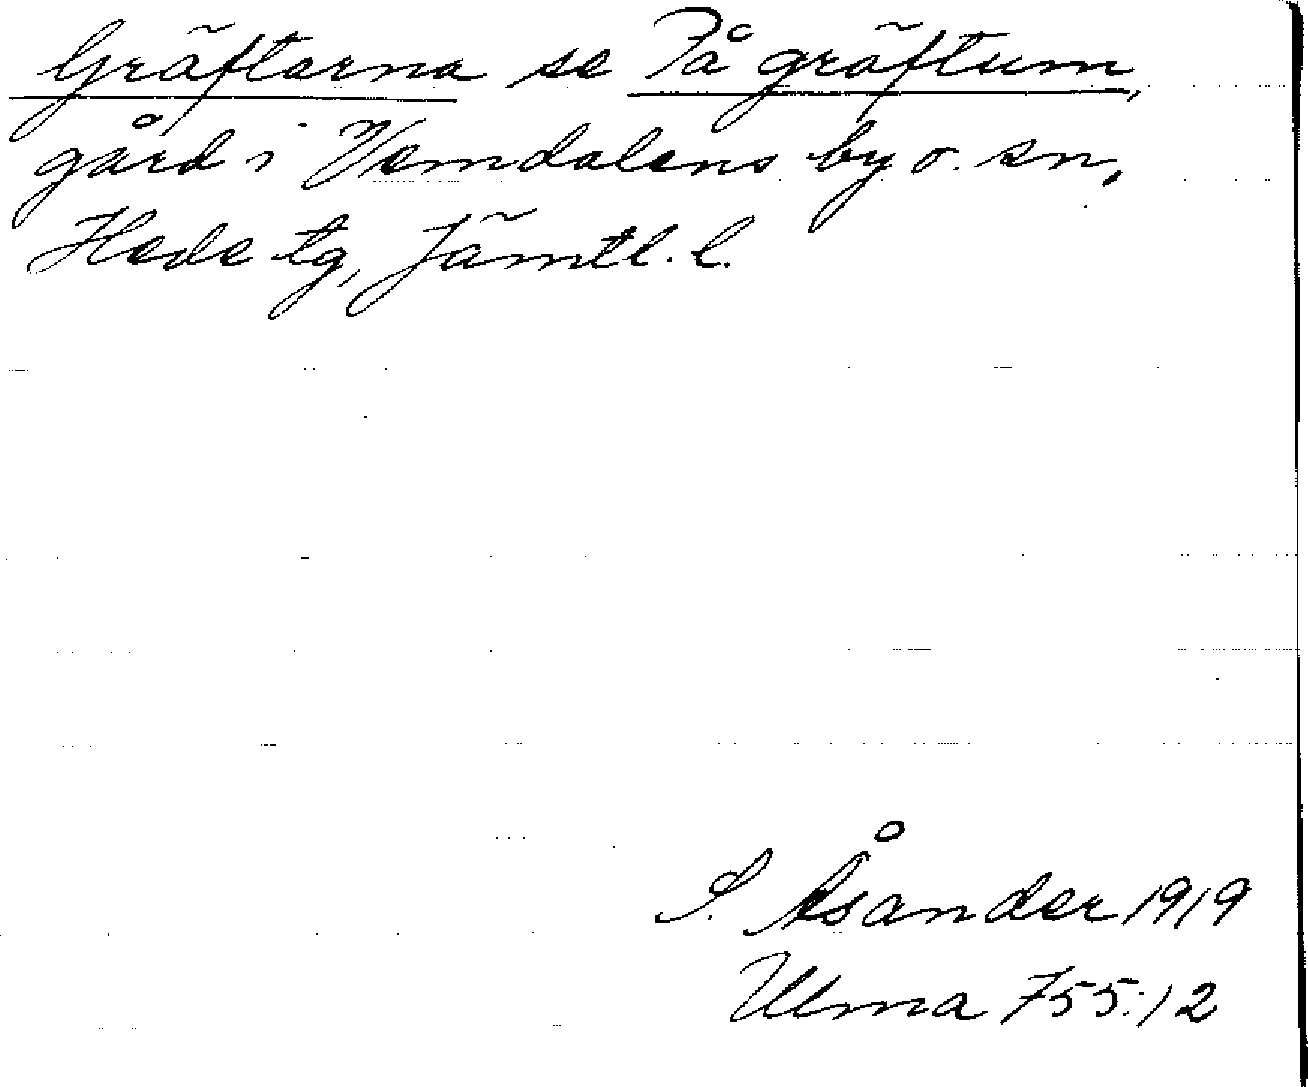 Gräftarna se På gräftum,
gård i Vemdalens by o. sn,
Hede tg, Jämtl. l.
S. Åsander 1919
Ulma 755:12